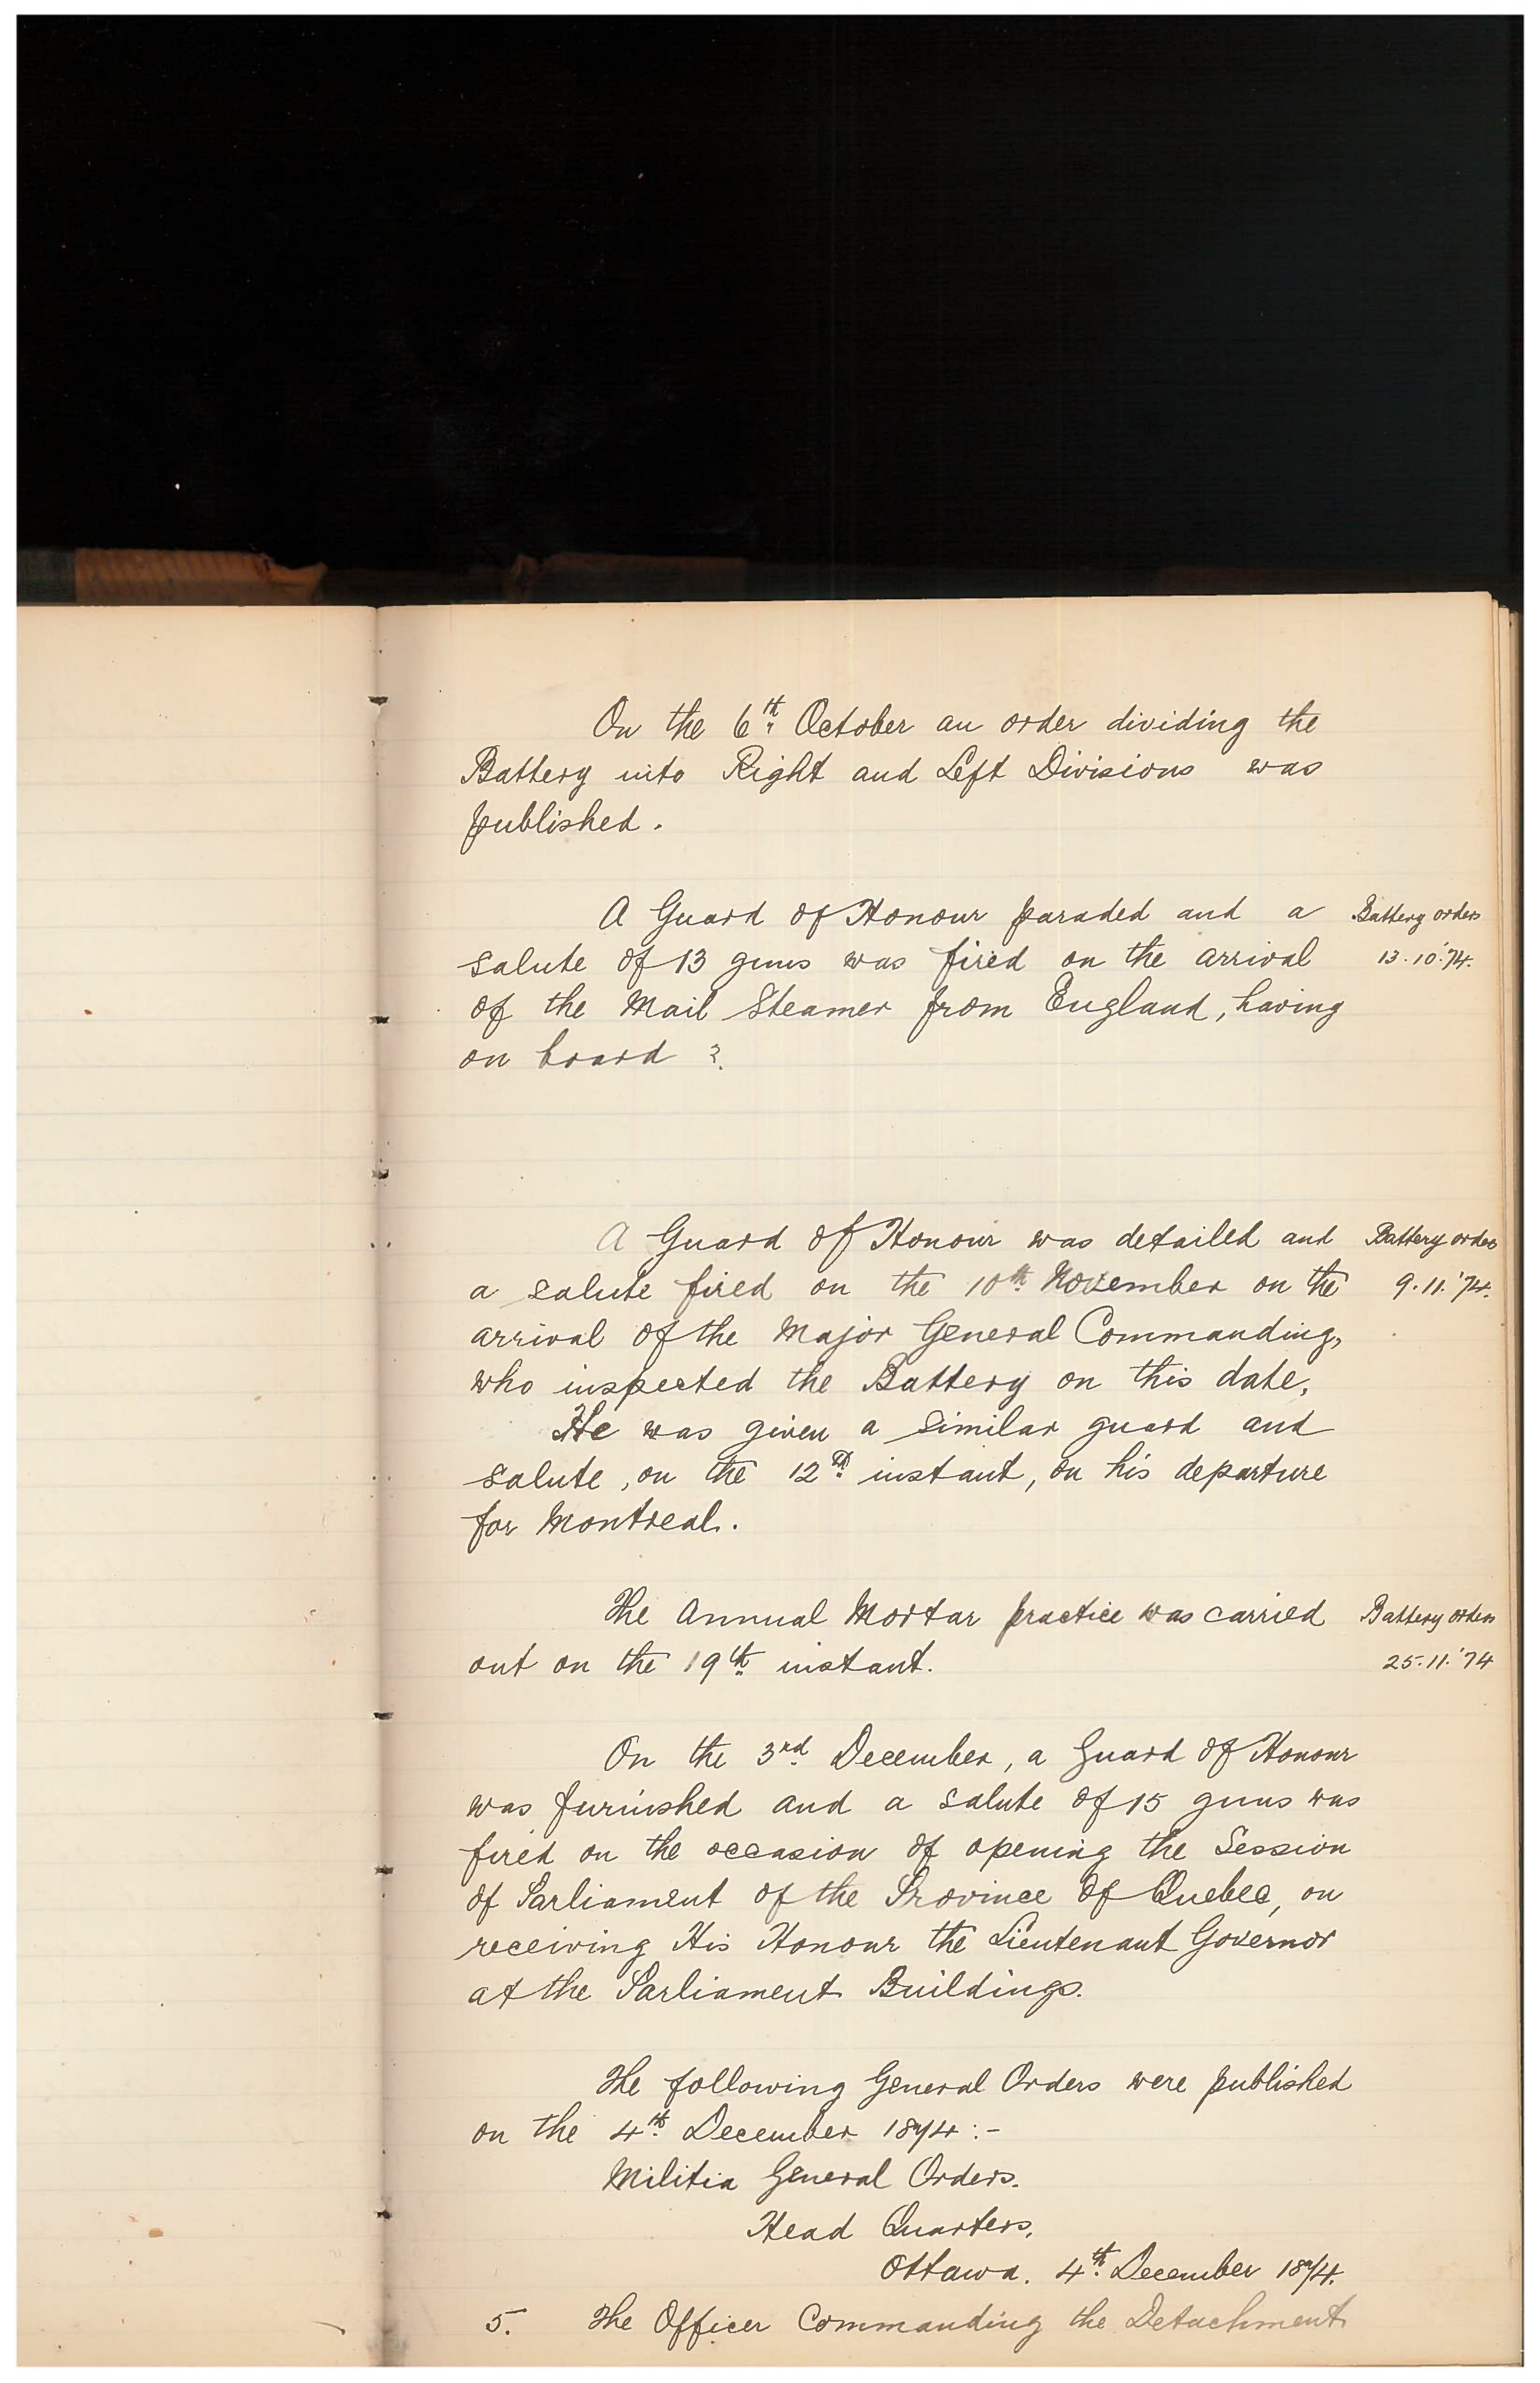 On the 6th October an order dividing the
Battery into Right and Left Divisions was
published.
A Guard of Honour paraded and a
Battery orders
salute of 13 guns was fired on the arrival
13.10.'74.
of the Mail Steamer from England, having
on board ?
A Guard of Honour was detailed and
Battery orders
a salute fired on the 10th November on the
9.11.'74.
arrival of the Major General Commanding,
who inspected the Battery on this date,
He was given a similar guard and
salute, on the 12th instant, on his departure
for Montreal.
The Annual Mortar practice was carried
Battery orders
out on the 19th instant.
25.11.'74
On the 3rd December, a Guard of Honour
was furnished and a salute of 15 guns was
fired on the occasion of opening the Session
of Parliament of the Province of Quebec, on
receiving His Honour the Lieutenant Governor
at the Parliament Buildings.
The following General Orders were published
on the 4th December 1874:-
Militia General Orders.
Head Quarters,
Ottawa. 4th December 1874.
5. The Officer Commanding the Detachment